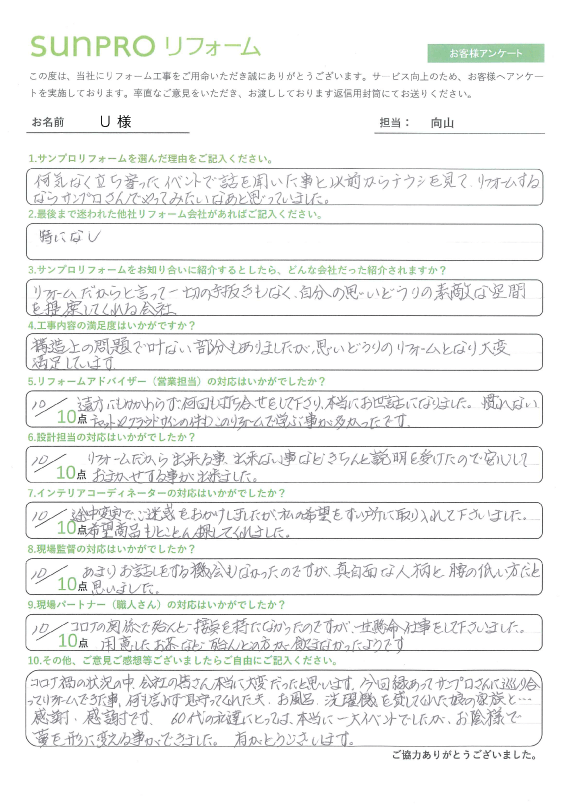 SUNPRO リフォーム
お客様アンケート
この度は、当社にリフォーム工事をご用命いただき誠にありがとうございます。サービス向上のため、お客様へアンケー
トを実施しております。率直なご意見をいただき、お渡ししております返信用封筒にてお送りください。
お名前 U 様 担当： 向山
1.サンプロリフォームを選んだ理由をご記入ください。
何気なく立ち寄ったイベントで話を聞いた事と以前からチラシを見て、リフォームする
ならサンプロさんでやってみたいなあと思っていました。
2.最後まで迷われた他社リフォーム会社があればご記入ください。
特になし
3.サンプロリフォームをお知り合いに紹介するとしたら、どんな会社だった紹介されますか？
リフォームだからと言って一切の手抜きもなく、自分の思いどうりの素敵な空間
を提案してくれる会社
4.工事内容の満足度はいかがですか？
構造上の問題で叶ない部分もありましたが、思いどうりのリフォームとなり大変
満足しています。
5.リフォームアドバイザー（営業担当）の対応はいかがでしたか？
10／10点 遠方にもかかわらず、何回も打ち合せをして下さり、本当にお世話になりました。慣れない
ネットやクラウドサインの体験、このリフォームで学ぶ事が多かったです。
6.設計担当の対応はいかがでしたか？
10／10点 リフォームだから出来る事、出来ない事などきちんと説明を受けたので安心して
おまかせする事が出来ました。
7.インテリアコーディネーターの対応はいかがでしたか？
10／10点 途中変更で、ご迷惑をおかけしましたが、私の希望をすい所に取り入れて下さいました。
希望商品もとことん探してくれました。
8.現場監督の対応はいかがでしたか？
10／10点 あまりお話しをする機会もなかったのですが、真面目な人柄と、腰の低い方だと
思いました。
9.現場パートナー（職人さん）の対応はいかがでしたか？
10／10点 コロナの関係で殆んど接点を持たなかったのですが、一生懸命、仕事をして下さいました。
用意したお茶など殆んどの方が飲まなかったようです
10.その他、ご意見ご感想等ございましたらご自由にご記入ください。
コロナ禍の状況の中、会社の皆さん本当に大変だったと思います。今回縁あってサンプロさんに巡り合
ってリフォームできた事、何も言わず見守ってくれた夫、お風呂、洗濯機を貸してくれた娘の家族と…
感謝・感謝です。 60代の私達にとっては、本当に一大イベントでしたが、お陰様で
夢を形に変える事ができました。 有がとうございます。
ご協力ありがとうございました。